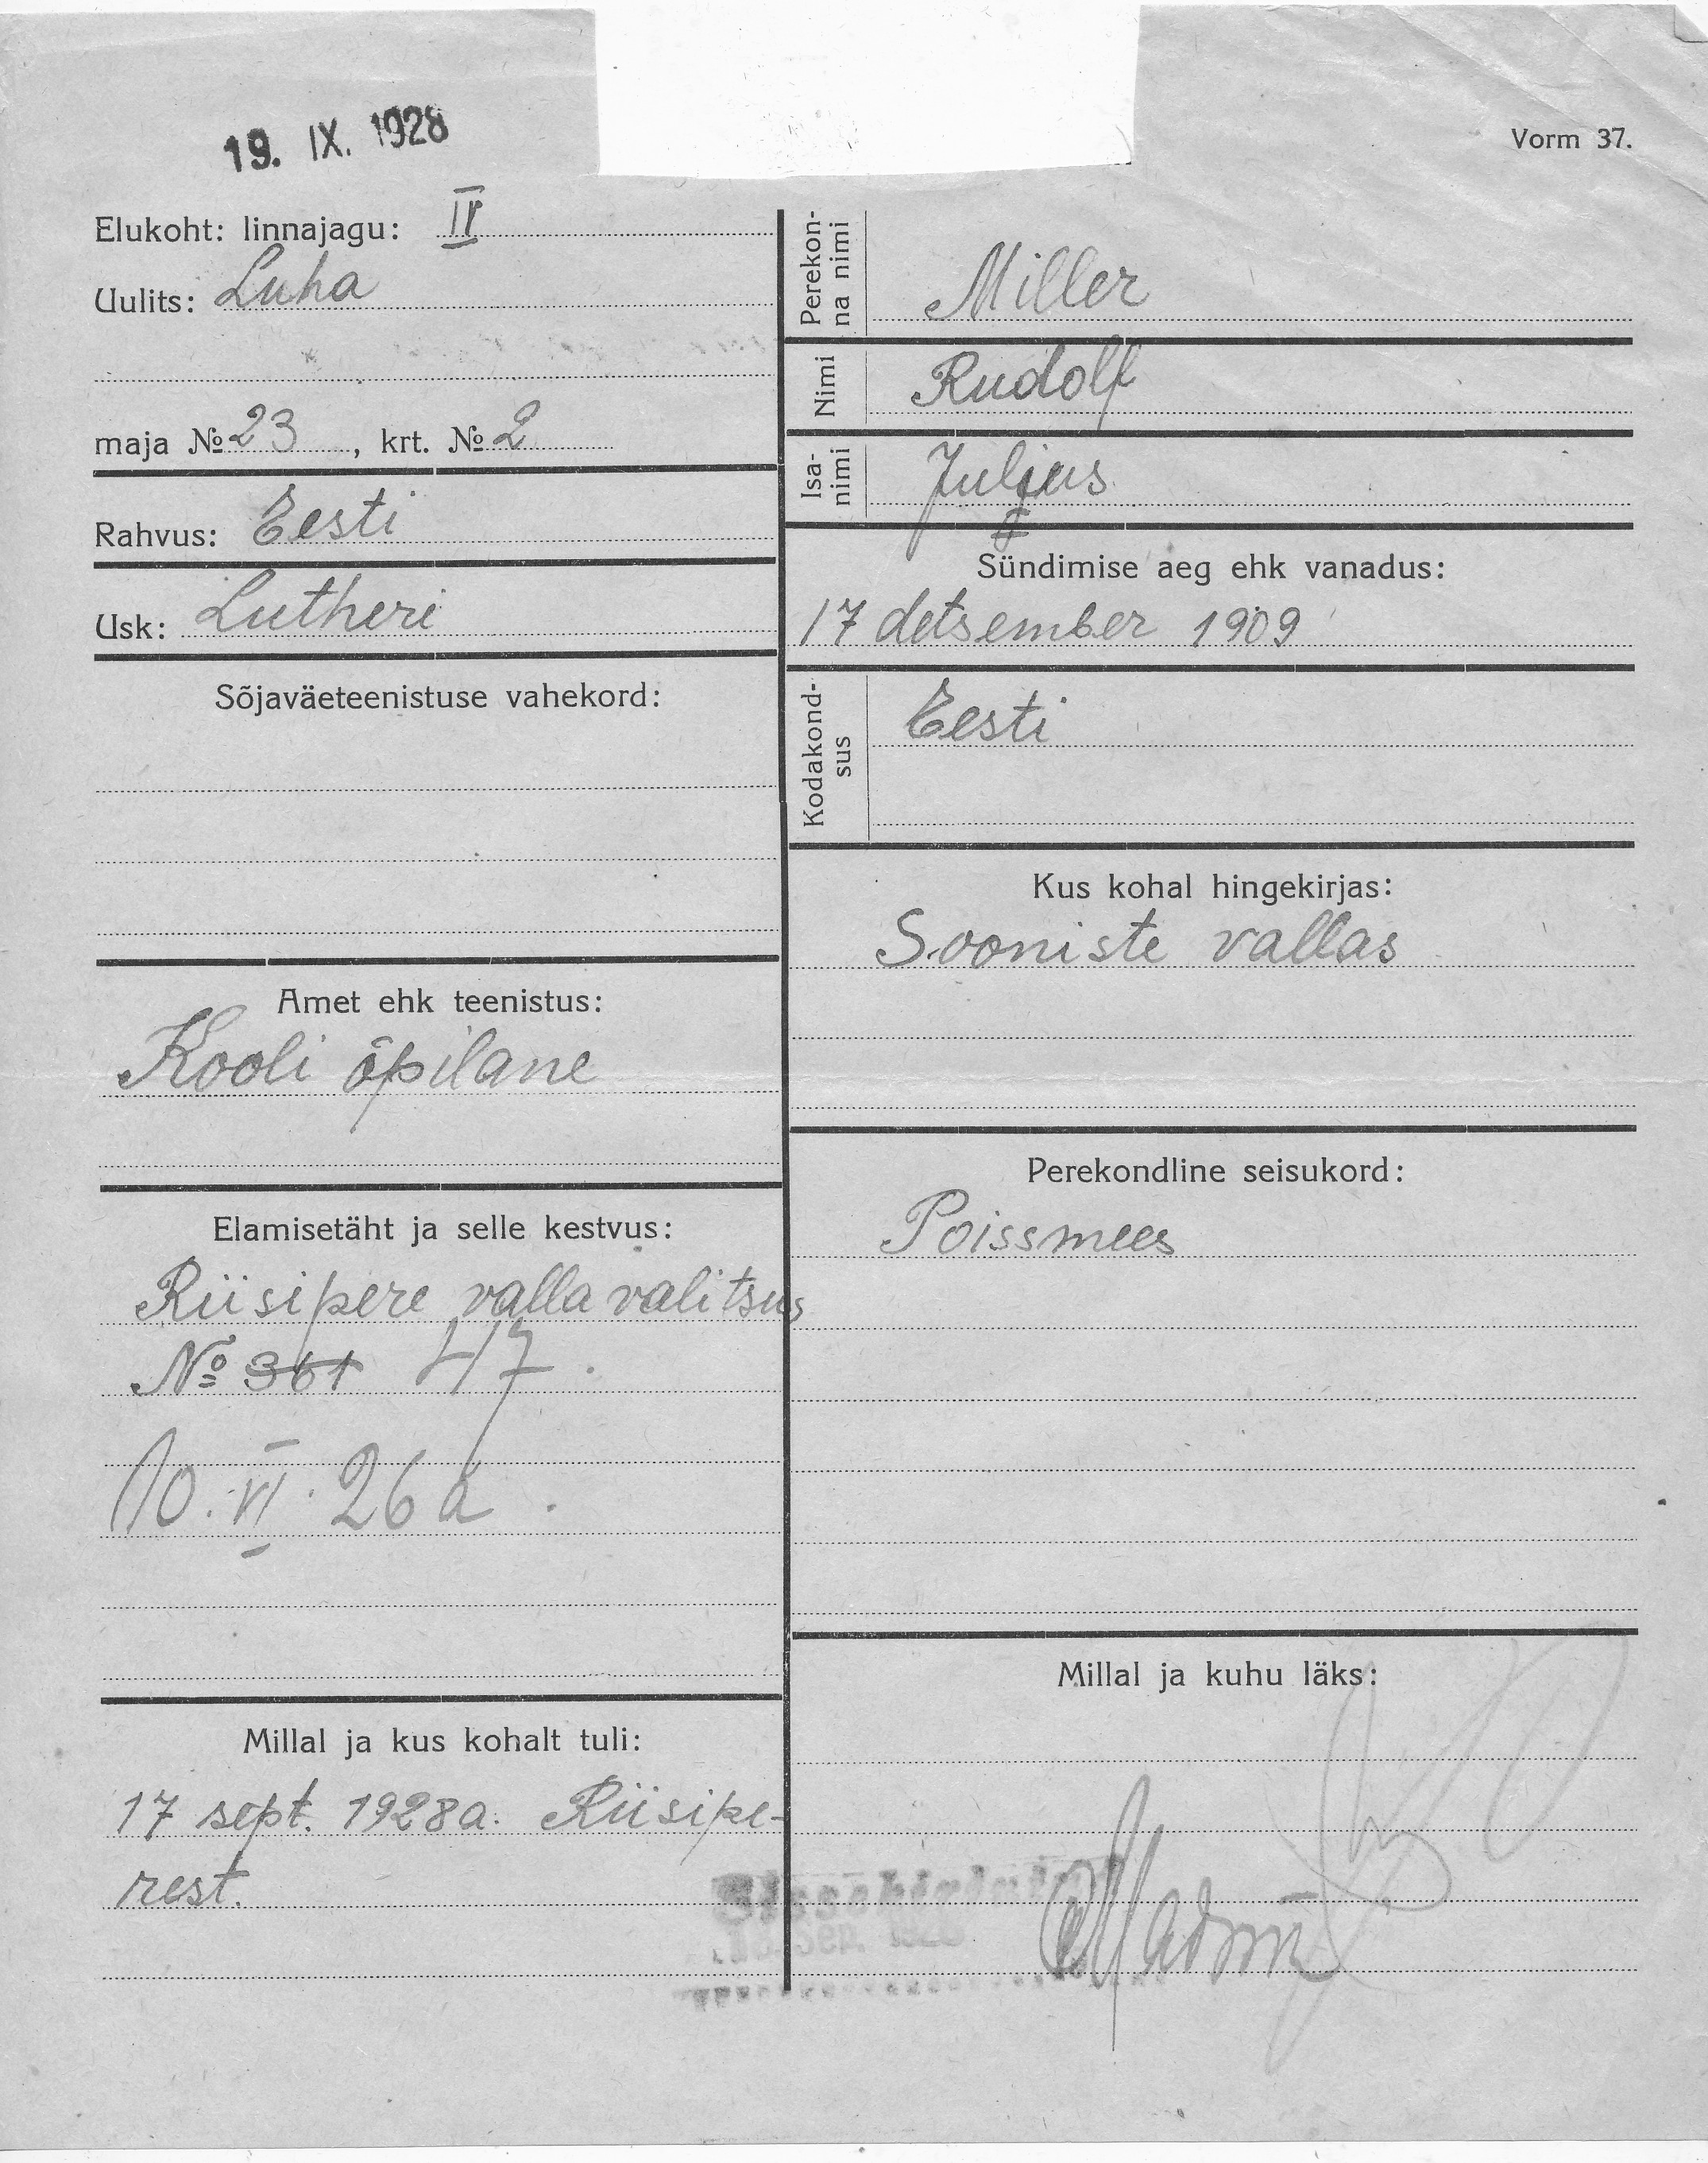 19. IX. 1928
Vorm 37.
Elukoht: linnajagu: IV
Uulits: Luha
maja № 23, krt. № 2
Rahvus: Eesti
Usk: Lutheri
Sõjaväeteenistuse vahekord:
Amet ehk teenistus:
Kooli õpilane
Elamisetäht ja selle kestvus:
Riisipere vallavalitsus
№ 361 47.
10. VI. 26 a.
Millal ja kus kohalt tuli:
17 sept. 1928 a. Riisipe-
rest.
Perekon-
na nimi
Miller
Nimi Rudolf
Isa-
nimi
Julius
Sündimise aeg ehk vanadus:
17 detsember 1909
Kodakond-
sus
Eesti
Kus kohal hingekirjas:
Sooniste vallas
Perekondline seisukord:
Poissmees
Millal ja kuhu läks: